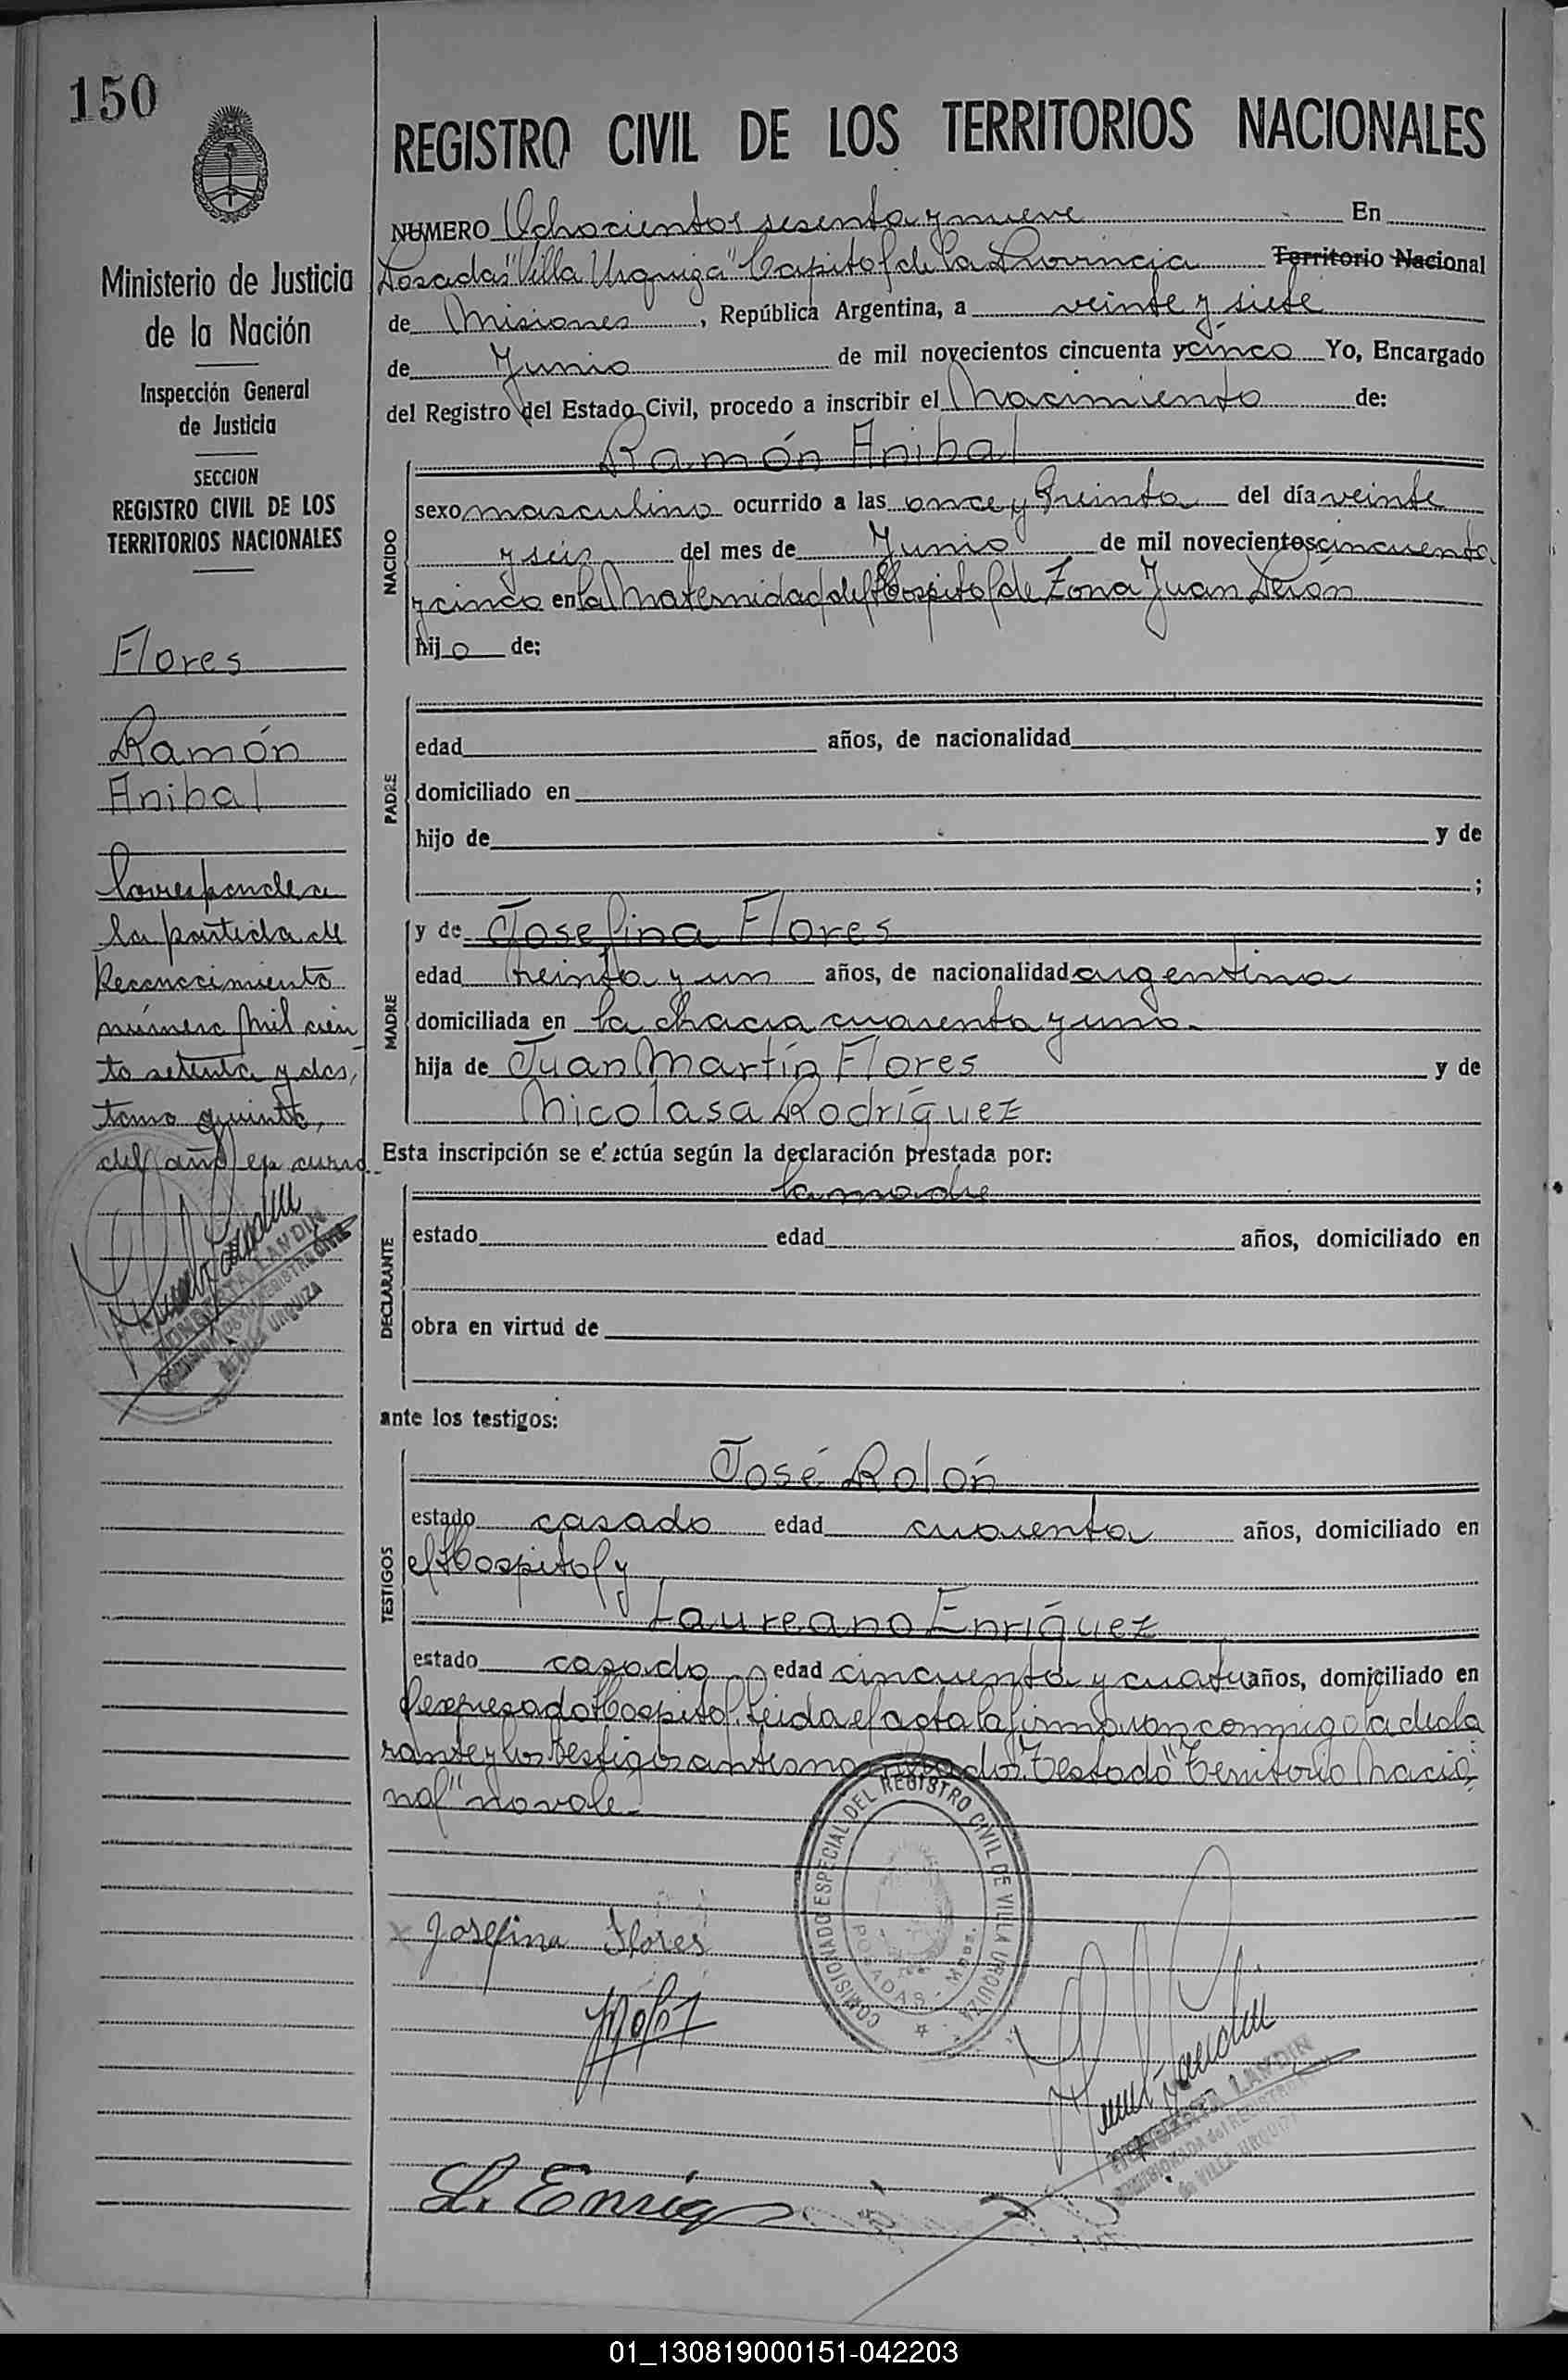 150
REGISTRO CIVIL DE LOS TERRITORIOS NACIONALES
Ministerio de Justicia
de la Nación
Inspección General
de Justicia
SECCION
REGISTRO CIVIL DE LOS
TERRITORIOS NACIONALES
Flores
Ramón
Anibal
Corresponde a
la partida de
Reconocimiento
número mil cien
to setenta y dos,
tomo quinto,
del año en curso.
NUMERO Ochocientos sesenta y nueve En
Posadas "Villa Urquiza" Capital de la Provincia Territorio Nacional
de Misiones, República Argentina, a veinte y siete
de Junio de mil novecientos cincuenta y cinco Yo, Encargado
del Registro del Estado Civil, procedo a inscribir el Nacimiento de:
Ramón Anibal
NACIDO
sexo masculino ocurrido a las once y treinta del día veinte
y seis del mes de Junio de mil novecientos cincuenta
y cinco en la Maternidad del Hospital de Zona Juan Perón
hijo de:
PADRE
edad años, de nacionalidad
domiciliado en
hijo de y de
;
MADRE
y de Josefina Flores
edad treinta y un años, de nacionalidad argentina
domiciliada en la chacra cuarenta y uno.
hija de Juan Martín Flores y de
Nicolasa Rodríguez
Esta inscripción se efectúa según la declaración prestada por:
la madre
DECLARANTE
estado edad años, domiciliado en
obra en virtud de
ante los testigos:
TESTIGOS
José Rolón
estado casado edad cuarenta años, domiciliado en
el Hospital y
Laureano Enríquez
estado casado edad cincuenta y cuatro años, domiciliado en
el expresado Hospital. Leida el acta la firmaron conmigo la decla
rante y los testigos antes nombrados. Testado "Territorio Nacio
nal" no vale.
COMISIONADO ESPECIAL DEL REGISTRO CIVIL DE VILLA URQUIZA
POSADAS - Mnes.
Josefina Flores
L. Enriq
LANDIN
COMISIONADA del REGISTRO
de VILLA URQUIZA
01_130819000151-042203